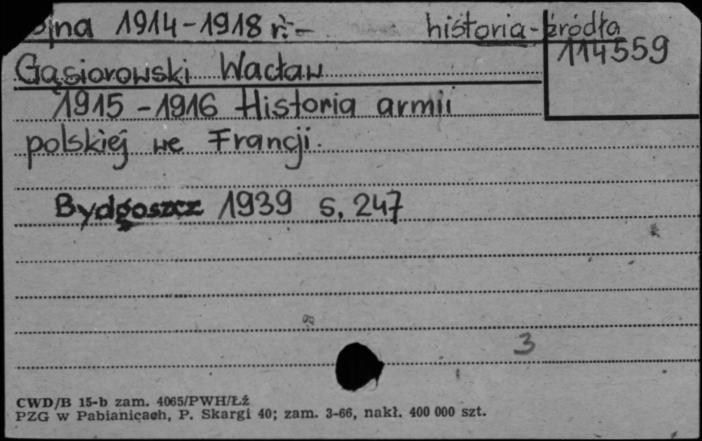 ojna 1914-1918 r.- historia-źródła
114559
Gąsiorowski Wacław
1915-1916 Historia armii
polskiej we Francji.
Bydgoszcz 1939 s. 247
3
CWD/B 15-b zam. 4065/PWH/Łź
PZG w Pabianicach, P. Skargi 40; zam. 3-66, nakł. 400 000 szt.